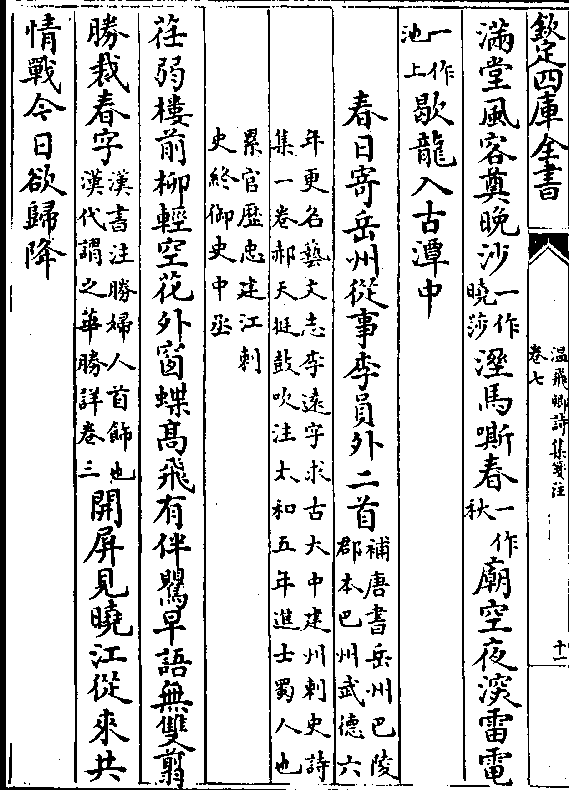 欽定四庫全書
温飛卿詩集箋注
卷七
十一
滿堂風容奠晚沙一作曉莎溼馬嘶春一作秋廟空夜深雷電
一作池上歇龍入古潭中
春日寄岳州從事李員外二首補唐書岳州巴陵郡本巴州武德六
年更名藝文志李遠字求古大中建州刺史詩
集一卷郝天挺鼓吹注太和五年進士蜀人也
累官歷忠建江刺
史終御史中丞
荏弱樓前柳輕空花外窗蝶髙飛有伴鸎早語無雙翦
勝裁春字漢書注勝婦人首飾也漢代謂之華勝詳卷三開屏見曉江從來共
情戰今日欲歸降